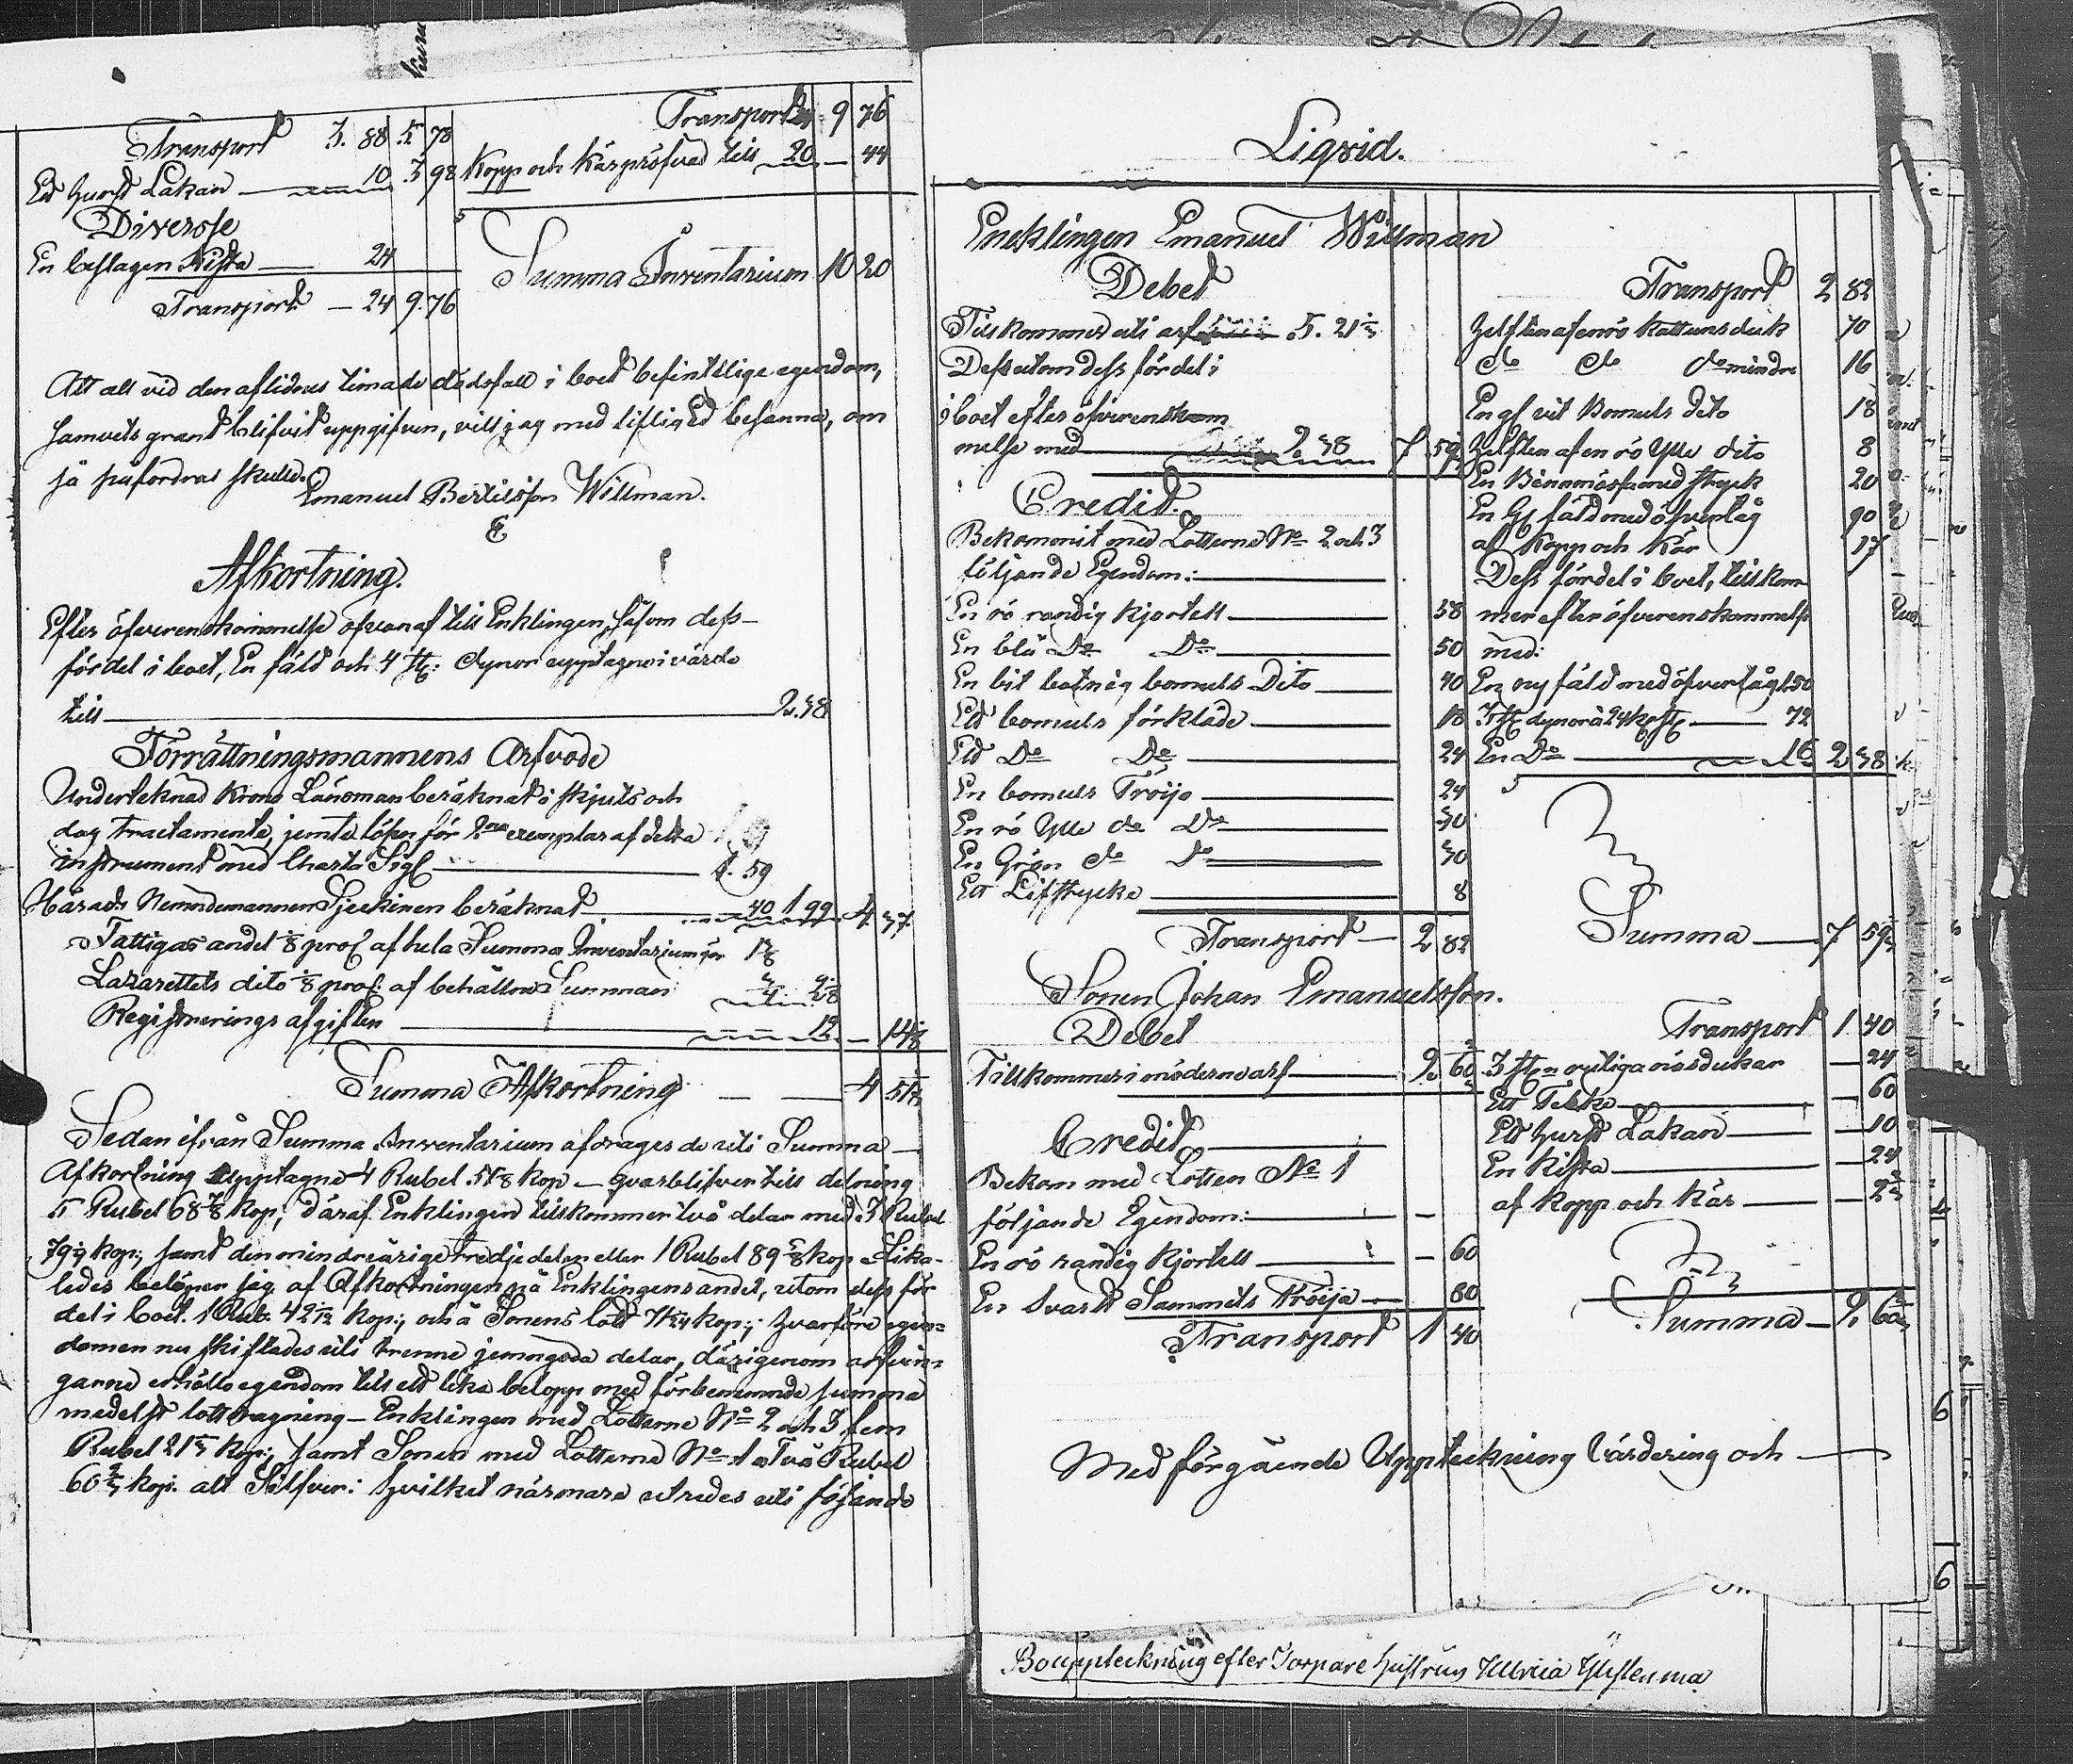 Transport 3. 88 5 78
Ett hurst Lakan 10 3 98
Diverse
En beslagen Kista 24
Transport — 24 9.76
Transport 24 9 76
Kopp och Kärpröfvad till 20 — 44
Summa Inventarium 10 20
Att alt vid den aflidnes timade dödsfall i boet befinttlige egendom,
samvets grant blifvit uppgifven, vill jag med liflig Ed besanna, om
så påfordras skulle.
Emanuel Bertilsson Willman.
Afkortning.
Efter öfverenskommelse ofvanaf till Enklingen, såsom dess
fördel i boet, En fäld och 4 st: dynor upptagne i värde
till 2.38
Förrättningsmannens Arfvode
Underteknad Krono Länsman beräknat i skjuts och
dag tractamente, jemte lösen för 2ne exemplar af detta
instrument med Charta Sigl 1. 59
Härads Nemndemannen Sjeckinen beräknat 40 1 99 4 37
Fattigas andel 1/8 proc af hela Summa Inventarium
Lazarettets dito 1/8 proc. af behållna Summan
Registrerings afgiften 12 — 14
Summa Afkortning 4 51
Sedan ifrån Summa Inventarium afdrages de uti Summa
Afkortning upptagne 4 Rubel 51 kop — qvarblifver till delning
5 Rubel 68 7/8 kop; däraf Enklingen tillkommer två delar med 3 Rubel
79 kop; samt den mindreårige tredjedelen eller 1 Rubel 89 5/8 kop Lika-
ledes belöper sig af Afkortningen på Enklingens andel, utom dess för
del i boet. 1 Rub. 42 kop; och å Sonens lott 71 kop; hvarföre egen=
domen nu skiftades uti trenne jemngoda delar, därigenom arfvin=
garne erhöllo egendom till ett lika belopp med förbenemnde summa
medelst lottdragning — Enklingen med Lotterne No 2 och 3 fem
Rubel 21 kop; samt Sonen med Lotterne No 1 a Två Rubel
60 kop. alt Silfver: hvilket närmare utredes uti föjande
Liqvid.
Encklingen Emanuel Willman
Debet
Tillkommer uti arf 5. 21
Dessutom dess fördel i
boet efter öfverenskom
melse med 2 38 7 59
Credit.
Bekommit med Lotterne No 2 och 3
följande Egendom:
En rö randig Kjortell 58
En blå Do Do 50
En bit bomuls Dito 40
Ett bomuls förkläde 18
Ett Do Do 24
En bomuls Tröija 24
En rö Ylle do Do 30
En Grön do Do 30
Ett Lifstycke 8
Transport — 2 82
Transport 2 82
Helften af en rö Kattuns duk 70
do do do mindre 16
En gl vit Bomuls dito 18
Helften af en rö Ylle dito 8
En med tryck 20
En Gl fäld med öfvertåg 90
af Kopp och Kär 17
Dess fördel i boet, tillkom
mer efter öfverenskommelse
med:
En ny fäld med öfvertåg 1.50
3 st dynor à 24 kop st 72
En Do 16 2 38
Summa — 7 59
Sonen Johan Emanuelsson.
Debet
Tillkommer i mödernearf 2. 60
Credit
Bekom med Lotten No 1
följande Egendom: —
En rö randig Kjortell — 60
En svart Sammets Tröija 80
Transport 1 40
Transport 1 40
3 st rutiga näsdukar — 24
Ett Täcke — 60
Ett hurst Lakan — 10
En Kista — 24
af Kopp och Kär — 2
Summa — 2. 60
Med förgående Uppteckning Värdering och
Bouppteckning efter Torpare hustrun Ulrica